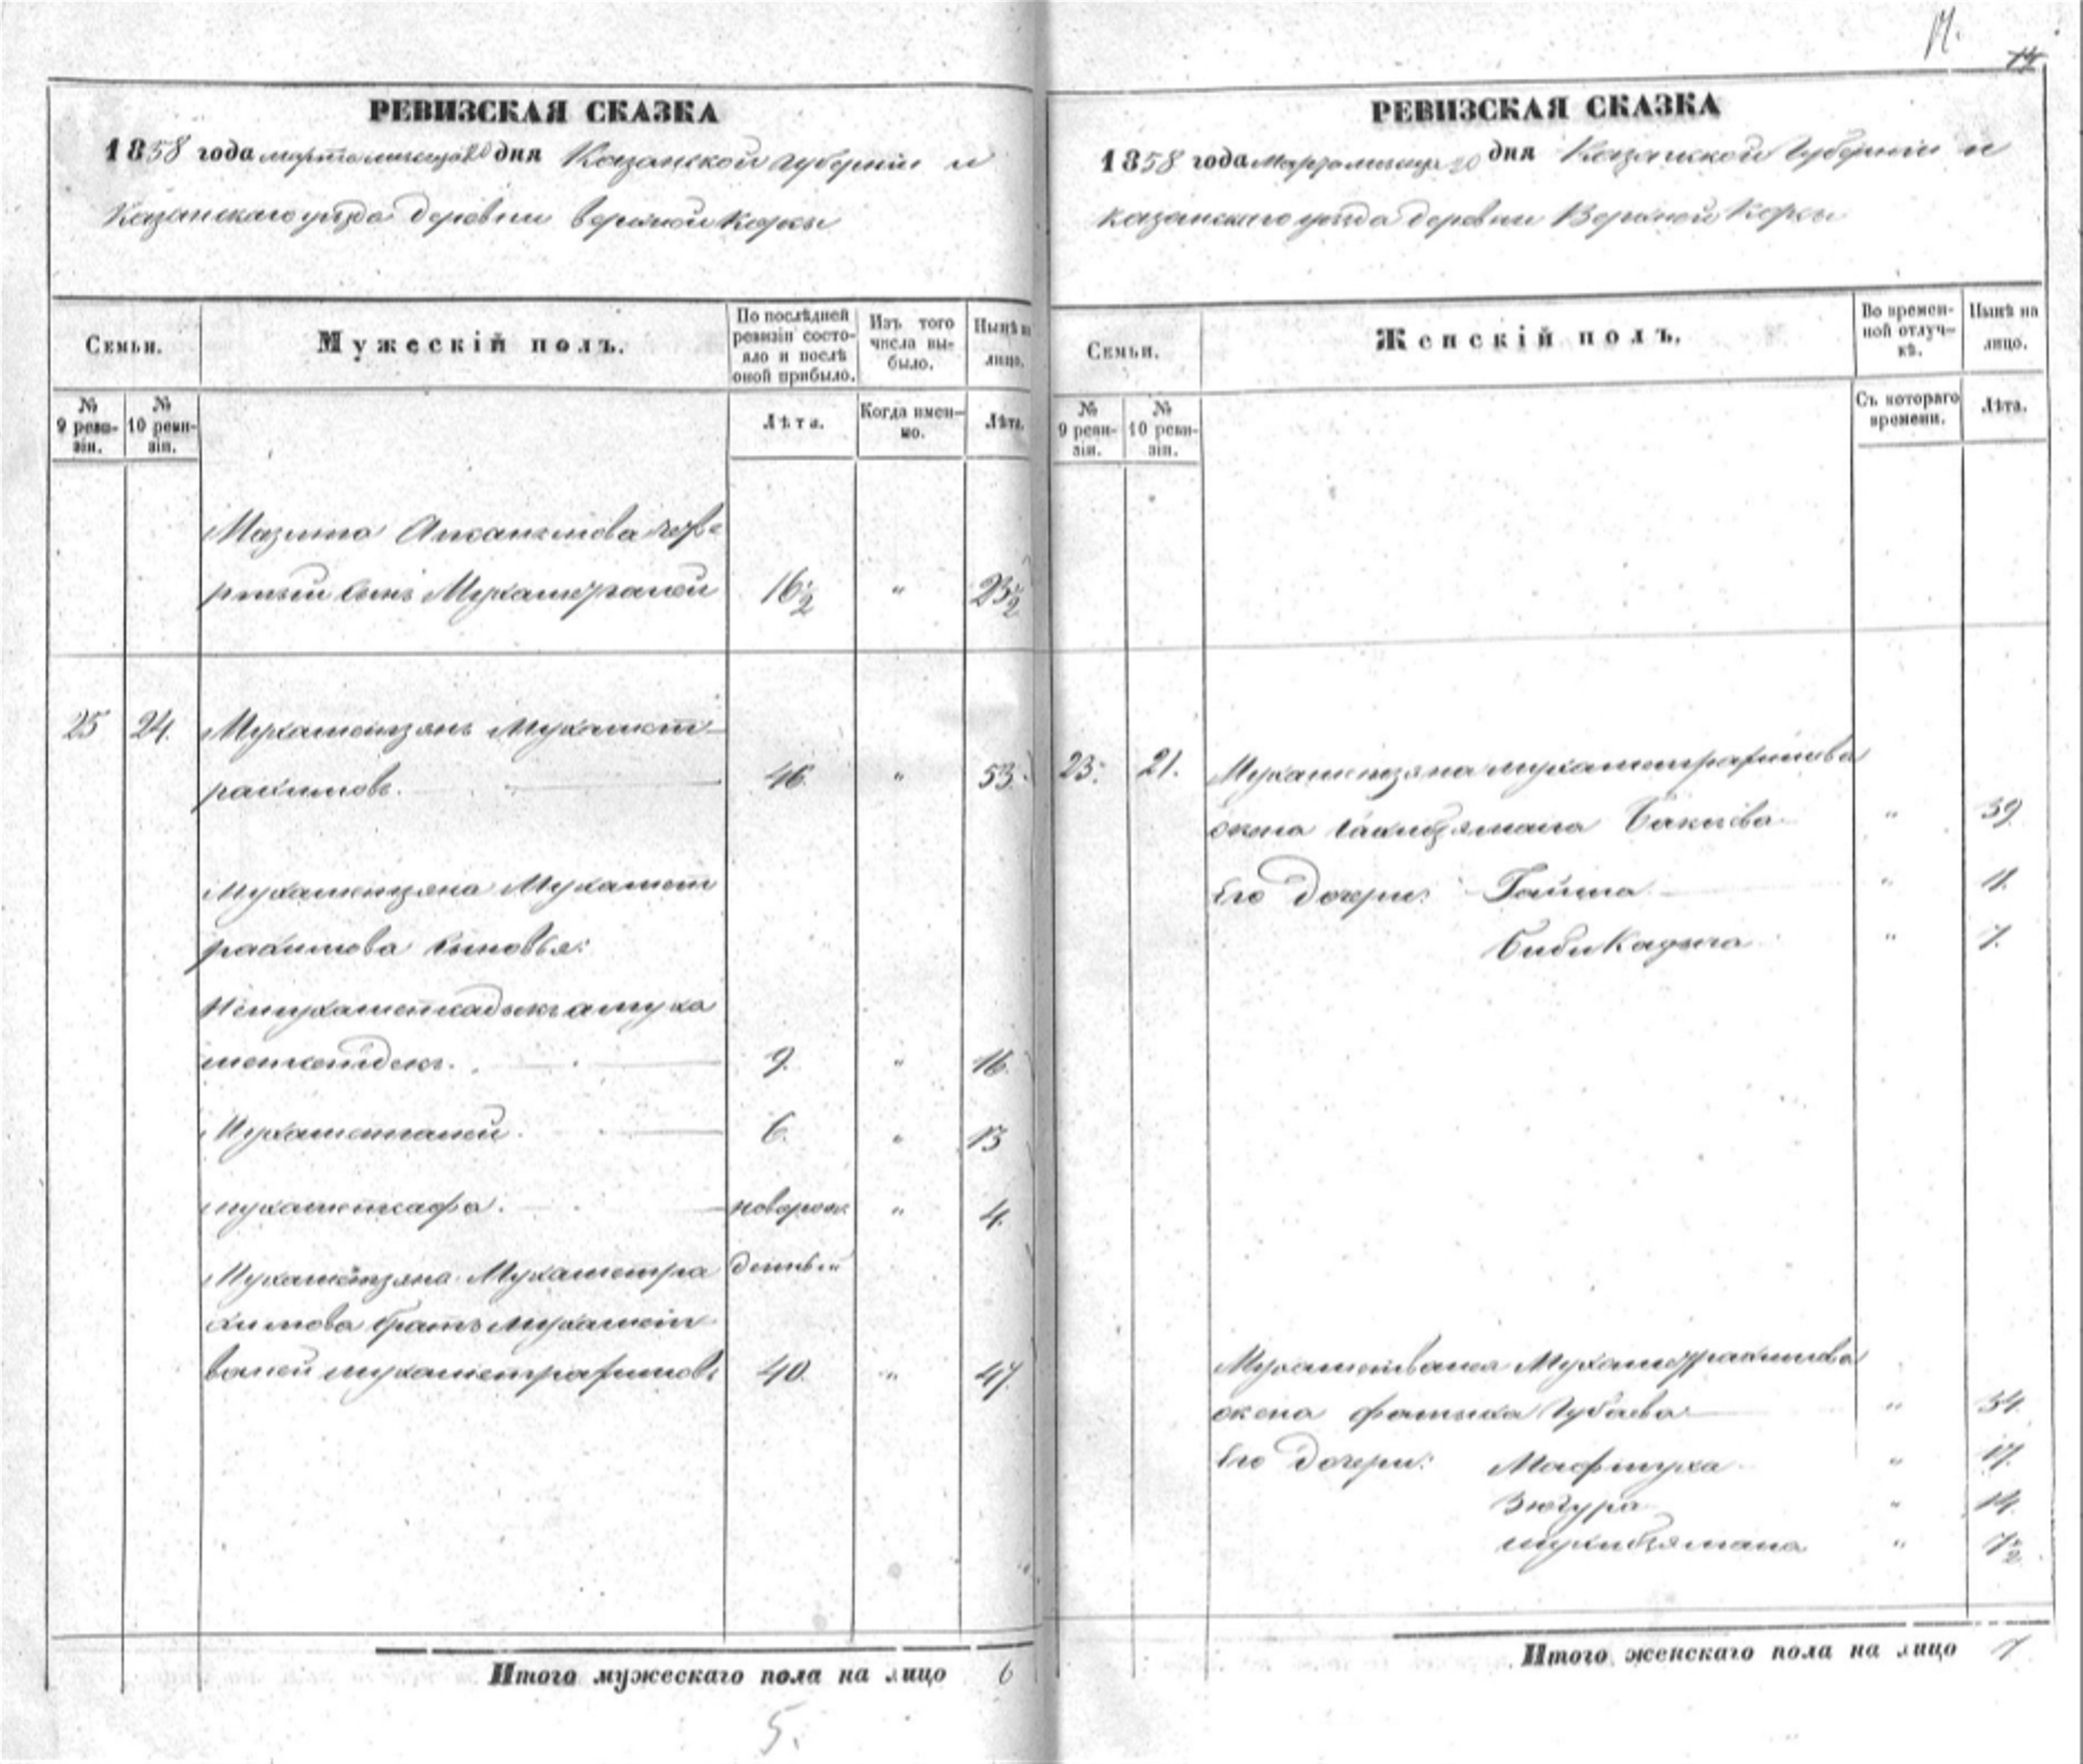 17.
14
РЕВИЗСКАЯ СКАЗКА
1858 года марта месяца 20 дня Казанской губернии и
Казанскаго уезда деревни верхной Корсы
Семьи.
Мужескій полъ.
По послѣдней ревизіи состояло и послѣ оной прибыло.
Изъ того числа выбыло.
Нынѣ на лицо.
№ 9 ревизіи.
№ 10 ревизіи.
Лѣта.
Когда именно.
Лѣта.
Мухаметгалей 16½ " 23½
25 24. Мухаметзянъ Мухамет-
рахимовъ. 46. " 53.
Мухаметзяна Мухамет
рахимова сыновья:
9. " 16.
Мухаметгалей. 6. " 13
мухаметсафа. новорож " 4.
Мухаметзяна Мухаметра денный
химова братъ Мухамет
валей мухаметрахимовъ 40. " 47.
Итого мужескаго пола на лицо 6
5.
РЕВИЗСКАЯ СКАЗКА
1858 года марта месяца 20 дня Казанской губернии и
казанскаго уезда деревни Верхной Корсы
Семьи.
Женскій полъ.
Во временной отлучкѣ.
Нынѣ на лицо.
№ 9 ревизіи.
№ 10 ревизіи.
Съ котораго времени.
Лѣта.
23. 21. Мухаметзяна мухаметрахимова
жена " 39.
Его дочери: Гайша " 11.
Биби Кадыча " 7.
Мухаметвалея Мухаметрахимова
жена фатыха Губаева " 34.
Его дочери: Мафтуха " 17.
Зюгура " 14.
" 7½
Итого женскаго пола на лицо 7